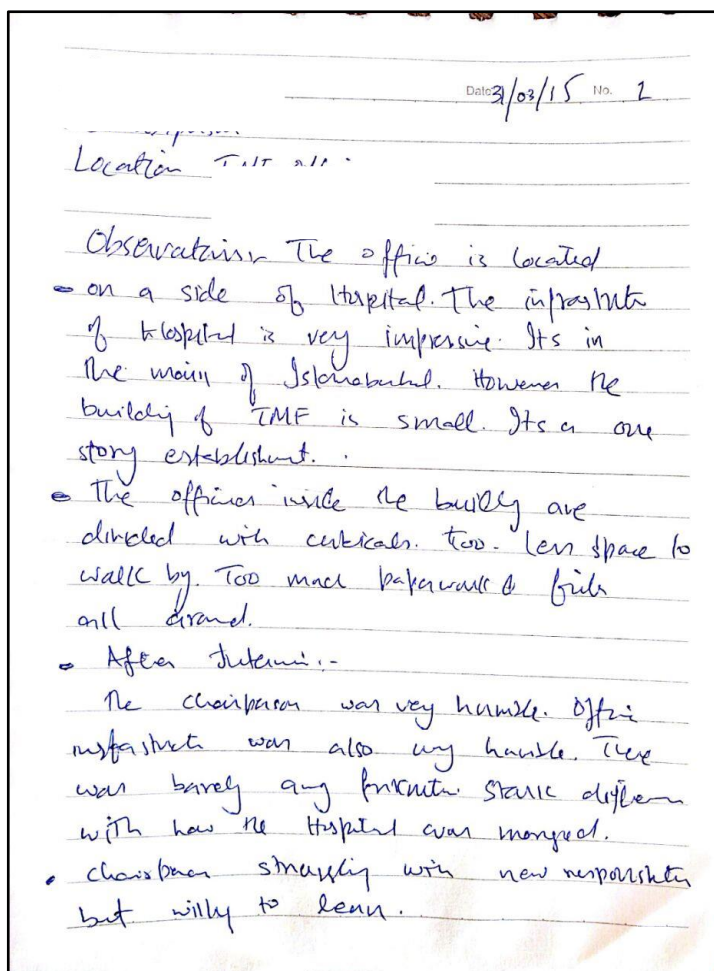 Date 31/03/15 No. 1
Location
Observations The office is located
on a side of Hospital. The infrastrute
of Hospital is very impressive. Its in
the main of Islamabad. However the
building of TMF is small. Its a one
story establishment.
The offices inside the building are
divided with cubicals. too. Less space to
walk by. Too much paperwork & files
all around.
After Interview:-
The chairperson was very humble. Office
infrastructure was also very humble. There
was barely any furniture. Stark difference
with how the Hospital was manged.
chairperson struggling with new responsibilities
but willing to learn.